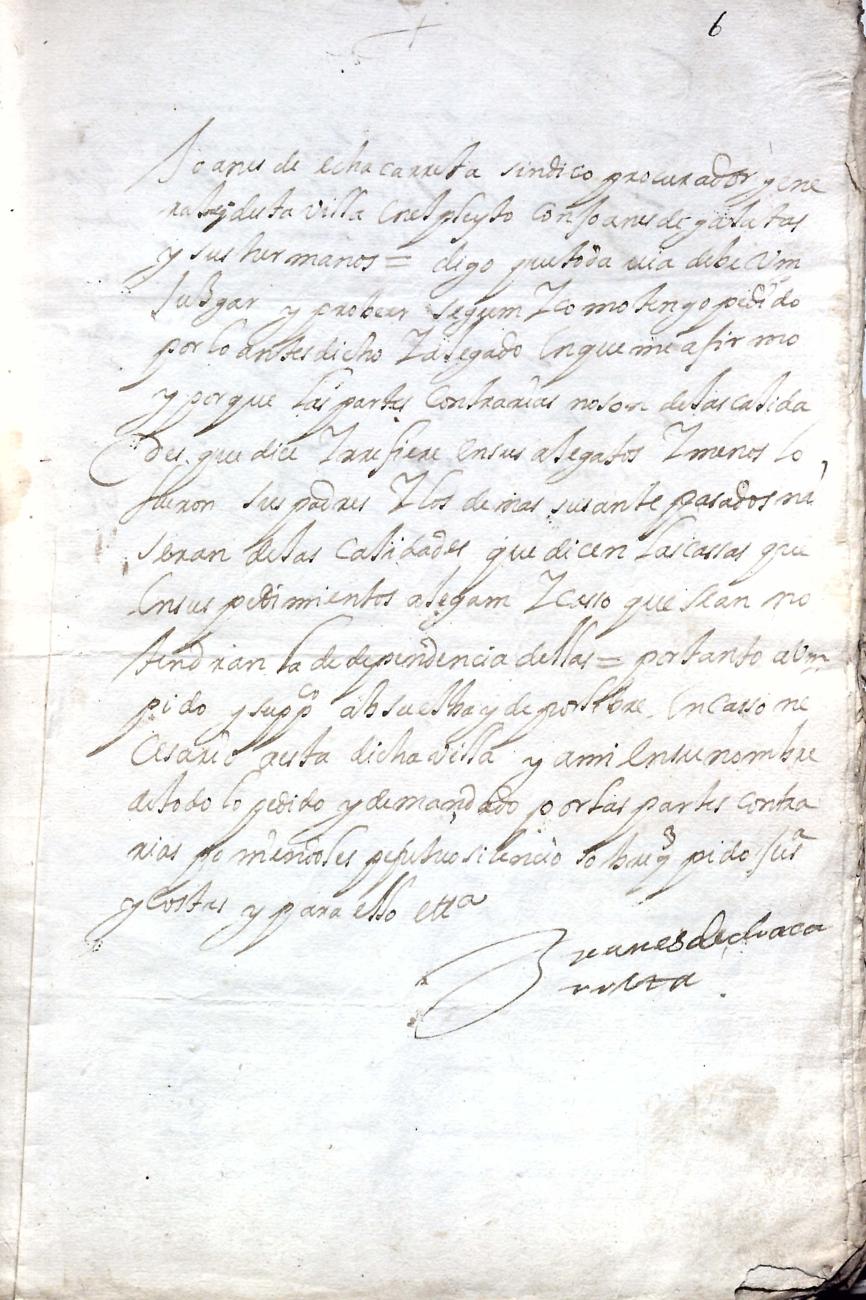 6
Joanes de echacarreta sindico procurador gene
ral desta villa en el pleyto con Joanes de galatas
y sus hermanos = digo que toda via debe Vm
Jusgar y probeer segum Y como tengo pedido
por lo antes dicho Y alegado en que me afirmo
y porque las partes contrarias no son de las calida
des que dice Y rrefiere en sus alegatos Y menos lo
fueron sus padres Y los demas sus ante pasados ni
seran de las calidades que dicen las cassas que
en sus pedimientos alegam Y casso que sean no
tendrian la de dependencia dellas = por tanto a Vm
pido y suppco absuelba y de por libre en casso ne
cesario a esta dicha villa y a mi en su nombre
de todo lo pedido y demandado por las partes contra
rias po niendoles pepetuo silencio sobre q pido Jusa
y costas y para ello etta
Joanes de chaca
rreta